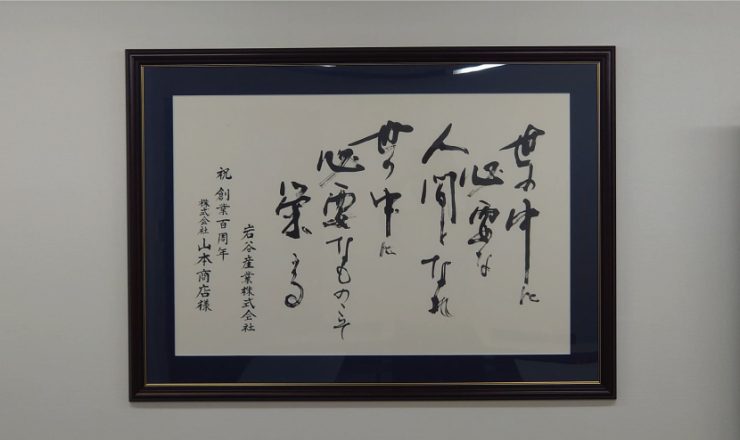 世の中に
必要な
人間となれ
世の中に
必要なものこそ
栄える
岩谷産業株式会社
祝 創業百周年
株式会社 山本商店様